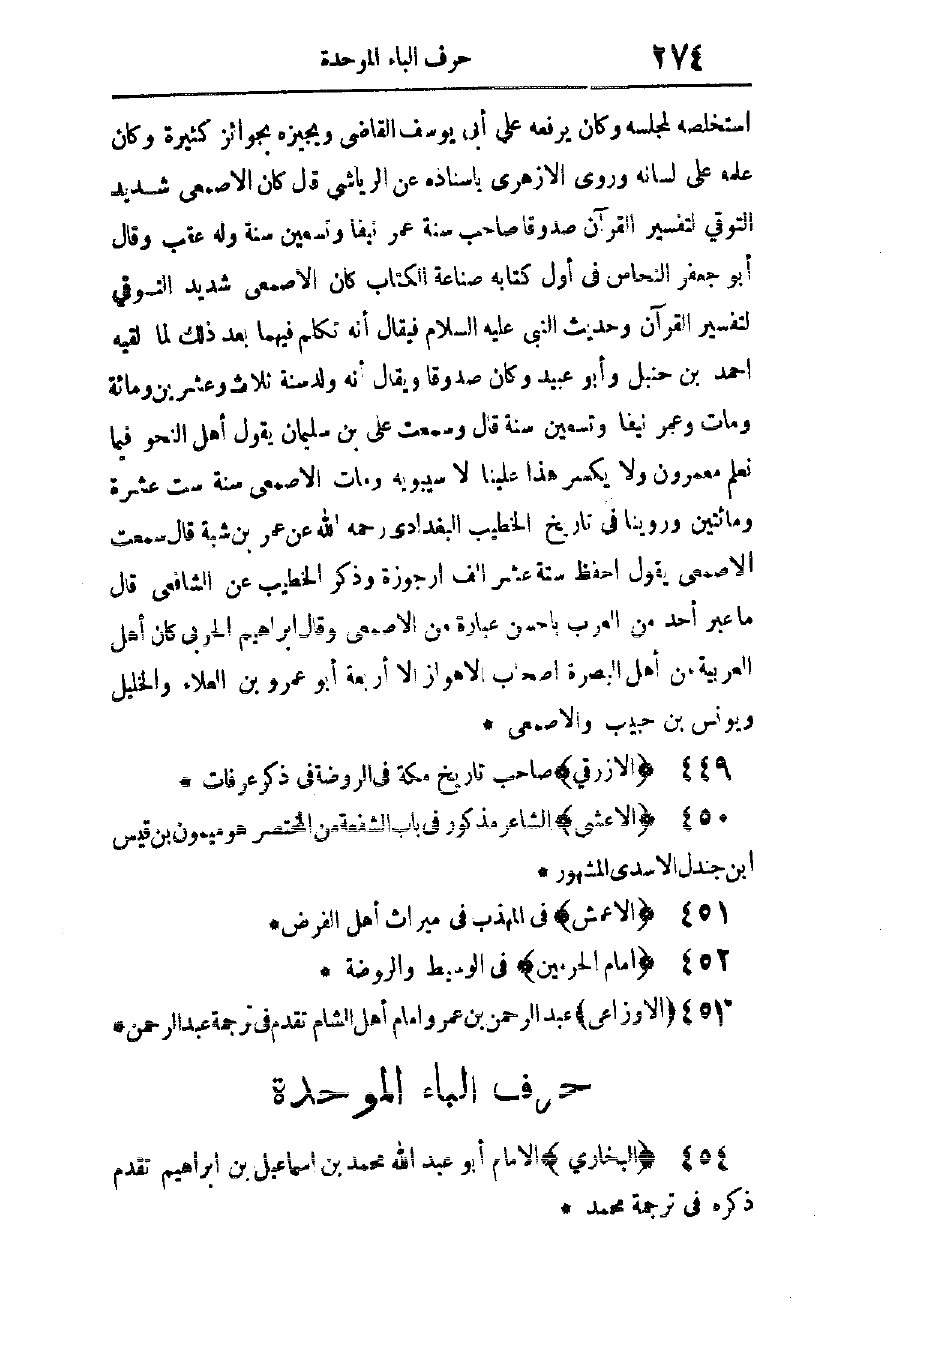 ٢٧٤ حرف الباء الموحدة
استخلصه لمجلسه وكان يرفعه علي أبي يوسف القاضى ويجيزه بجوائز كثيرة وكان
علمه على لسانه وروى الازهرى باسناده عن الرياشي قال كان الاصمعى شديد
التوقي لتفسير القرآن صدوقا صاحب سنة عمر نيفا وتسعين سنة وله عقب وقال
أبو جعفر النحاس فى أول كتابه صناعة الكتاب كان الاصمعى شديد التوقي
لتفسير القرآن وحديث النبى عليه السلام فيقال أنه تكلم فيهما بعد ذلك لما لقيه
احمد بن حنبل وأبو عبيد وكان صدوقا ويقال أنه ولد سنة ثلاث وعشرين ومائة
ومات وعمر نيفا وتسعين سنة قال وسمعت على بن سليمان يقول أهل النحو فيما
نعلم معمرون ولا يكسر هذا علينا لا سيبويه ومات الاصمعى سنة ست عشرة
ومائتين وروينا فى تاريخ الخطيب البغدادى رحمه الله عن عمر بن شبة قال سمعت
الاصمعى يقول احفظ ستة عشر الف ارجوزة وذكر الخطيب عن الشافعى قال
ما عبر أحد من العرب باحسن عبارة من الاصمعى وقال ابراهيم الحربى كان أهل
العربية من أهل البصرة اصحاب الاهواز الا أربعة أبو عمرو بن العلاء والخليل
ويونس بن حبيب والاصمعى *
٤٤٩ ﴿الازرقي﴾ صاحب تاريخ مكة فى الروضة فى ذكر عرفات *
٤٥٠ ﴿الاعشى﴾ الشاعر مذكور فى باب الشفعة من المختصر هو ميمون بن قيس
ابن جندل الاسدى المشهور *
٤٥١ ﴿الاعمش﴾ فى المهذب فى ميراث أهل الفرض *
٤٥٢ ﴿امام الحرمين﴾ فى الوسيط والروضة *
٤٥٣ (الاوزاعى) عبد الرحمن بن عمرو امام أهل الشام تقدم فى ترجمة عبد الرحمن *
حرف الباء الموحدة
٤٥٤ ﴿البخاري﴾ الامام أبو عبد الله محمد بن اسماعيل بن ابراهيم تقدم
ذكره فى ترجمة محمد *